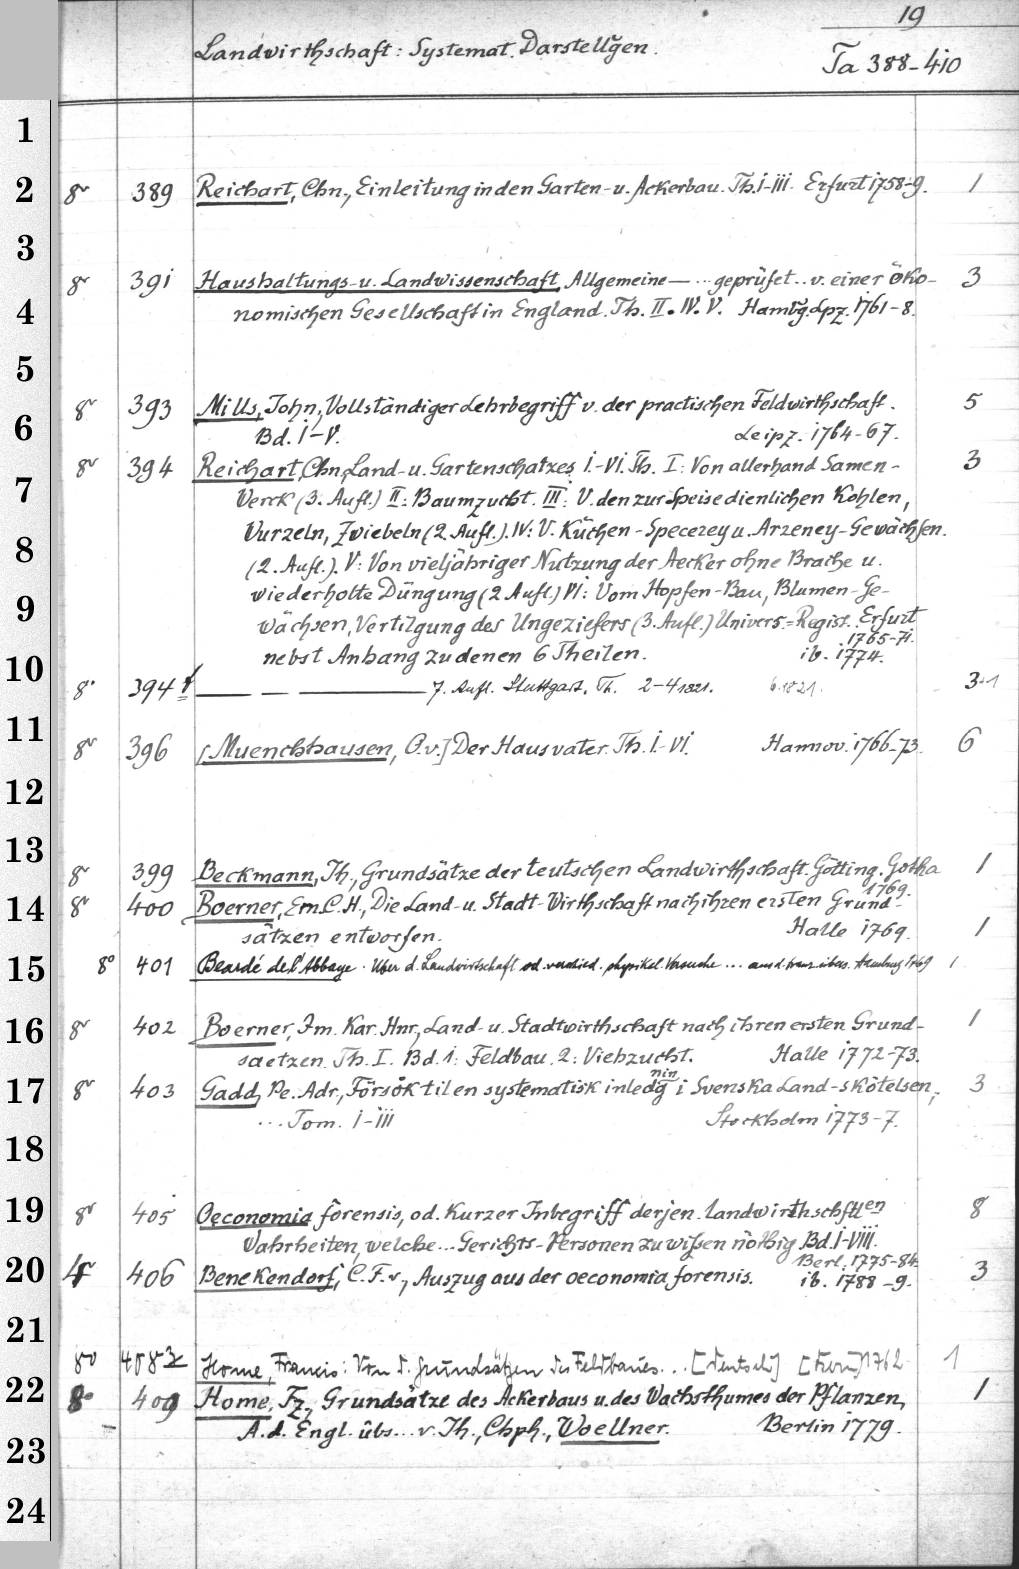 19
Landwirthschaft: Systemat. Darstellḡen.
Ta 388-410
1
2 8° 389 Reichart, Chn., Einleitung in den Garten- u. Ackerbau. Th. I-III. Erfurt 1758-9. 1
3
8° 391 Haushaltungs- u. Landwissenschaft, Allgemeine — ... geprüfet .. v. einer öko- 3
4 nomischen Gesellschaft in England. Th. II. IV. V. Hambg. Lpz. 1761-8.
5
8° 393 Mills, John, Vollständiger Lehrbegriff v. der practischen Feldwirthschaft. 5
6 Bd. I-V. Leipz. 1764-67.
8° 394 Reichart, Chn., Land- u. Gartenschatzes I.-VI. Th. I: Von allerhand Samen- 3
7 Werck (3. Aufl.) II: Baumzucht. III: V. den zur Speise dienlichen Kohlen,
Wurzeln, Zwiebeln (2. Aufl.). IV: V. Küchen-Specezey u. Arzeney-Gewächsen.
8 (2. Aufl.). V: Von vieljähriger Nutzung der Aecker ohne Brache u.
wiederholte Düngung (2. Aufl.) VI: Vom Hopfen-Bau, Blumen-Ge-
9 wächsen, Vertilgung des Ungeziefers (3. Aufl.) Univers.=Regist. Erfurt
1765-71.
10 nebst Anhang zu denen 6 Theilen. ib. 1774.
8° 394 — — — 7. Aufl. Stuttgart, Th. 2-4 1821. 6.1821. 3+1
11 8° 396 [Muenchhausen, O. v.] Der Hausvater. Th. I-VI. Hannov. 1766-73. 6
12
13
8° 399 Beckmann, Th., Grundsätze der teutschen Landwirthschaft. Götting. Gotha 1
1769.
14 8° 400 Boerner, Em. C. H., Die Land- u. Stadt-Wirthschaft nach ihren ersten Grund-
sätzen entworfen. Halle 1769. 1
15 8° 401 Beardé de l'Abbaye. Über d. Landwirtschaft od. verschied. physikal. Versuche ... aus d. Franz. übers. Hamburg 1769 1
16 8° 402 Boerner, Im. Kar. Hnr., Land- u. Stadtwirthschaft nach ihren ersten Grund- 1
saetzen. Th. I. Bd. 1: Feldbau. 2: Viehzucht. Halle 1772-73.
nin
17 8° 403 Gadd, Pe. Adr., Försök til en systematisk inledg i Svenska Land-skötelsen, 3
... Tom. I-III Stockholm 1773-7.
18
19 8° 405 Oeconomia forensis, od. Kurzer Inbegriff derjen. landwirthschftlen 8
Wahrheiten, welche ... Gerichts-Personen zu wissen nöthig Bd. I-VIII.
Berl. 1775-84.
20 4° 406 Benekendorf, C. F. v., Auszug aus der oeconomia forensis. ib. 1788-9. 3
21
8° 408 Home, Francis: Von d. Grundsätzen des Feldbaues. .. [deutsch] 1762 1
22 8° 409 Home, Fz., Grundsätze des Ackerbaus u. des Wachsthumes der Pflanzen, 1
A. d. Engl. übs... v. Th., Chph., Woellner. Berlin 1779.
23
24